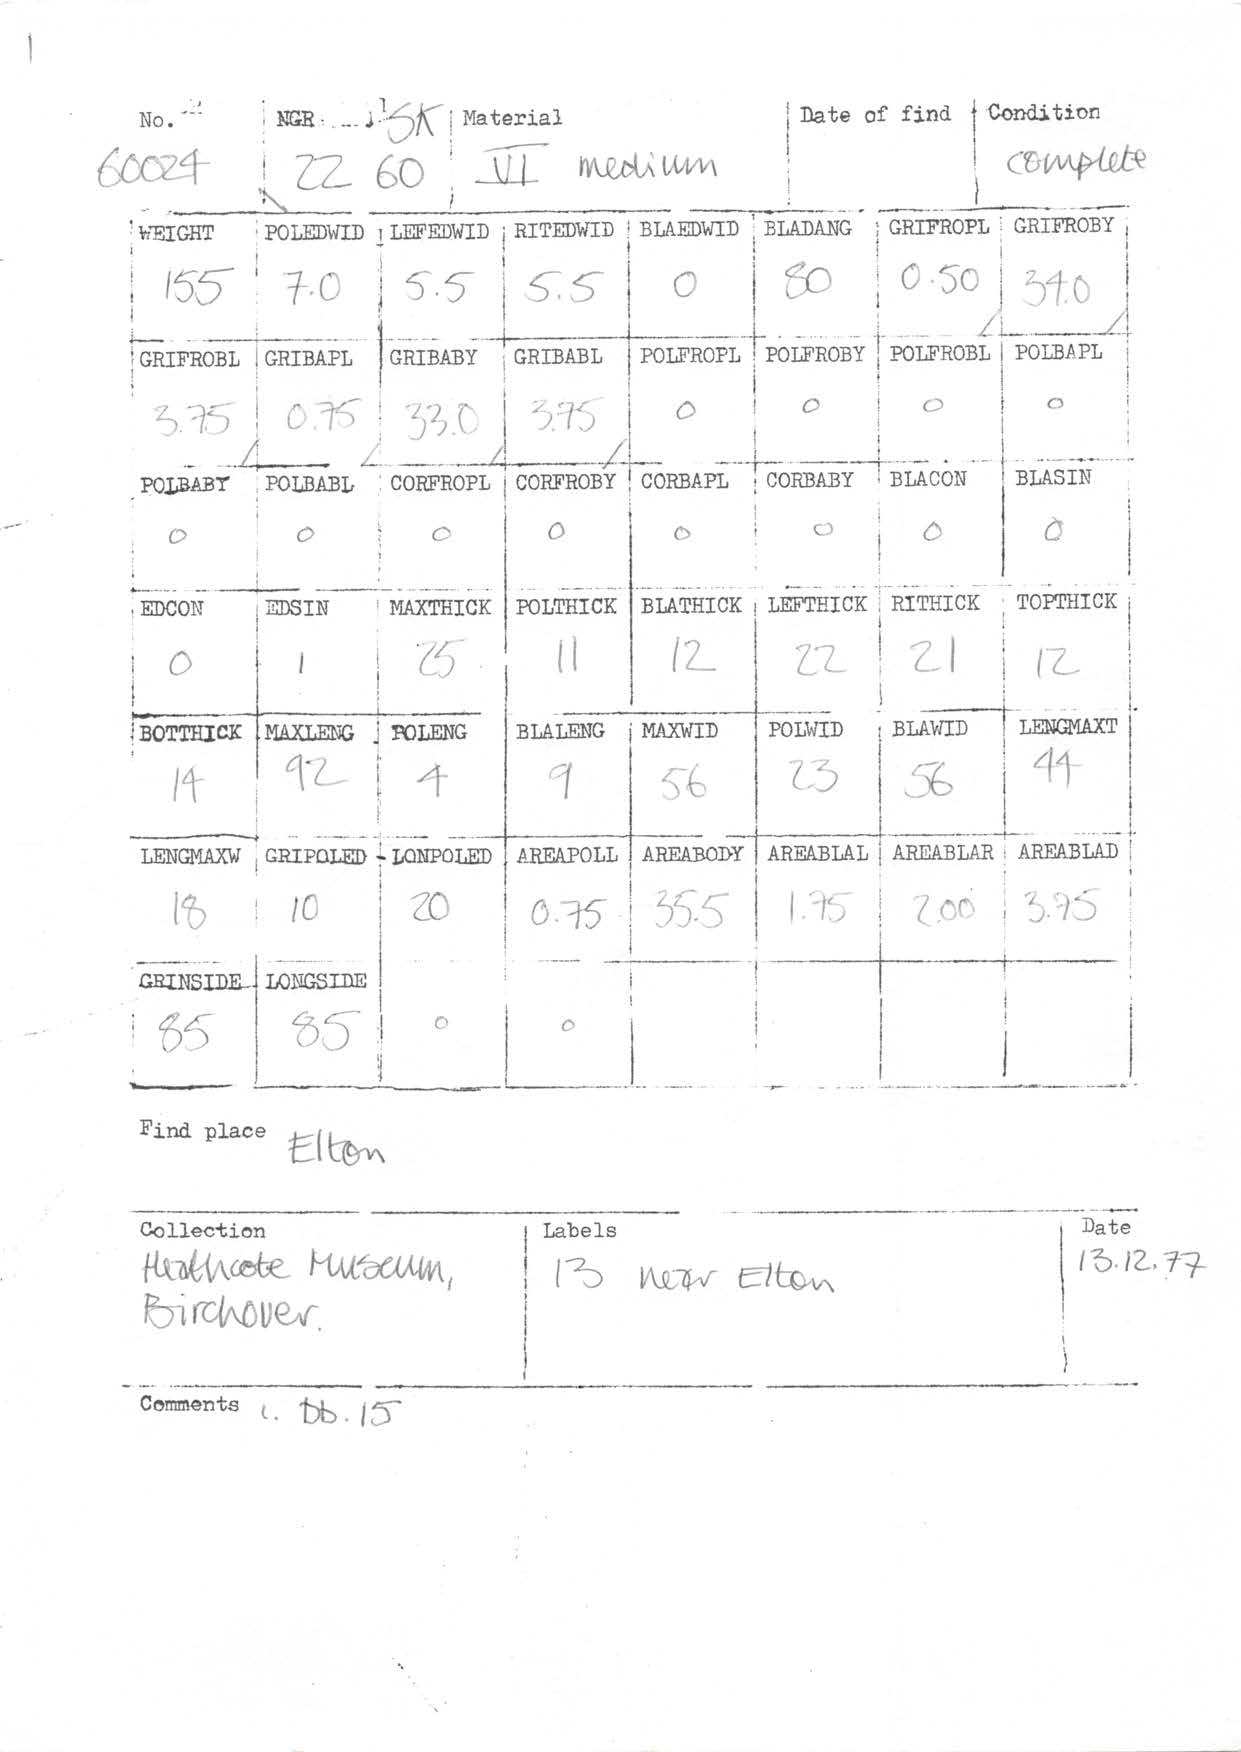 No. NGR SK Material Date of find Condition
60024 22 60 VI medium complete
WEIGHT POLEDWID LEFEDWID RITEDWID BLAEDWID BLADANG GRIFROPL GRIFROBY
155 7.0 5.5 5.5 0 80 0.50 34.0
GRIFROBL GRIBAPL GRIBABY GRIBABL POLFROPL POLFROBY POLFROBL POLBAPL
3.75 0.75 33.0 3.75 0 0 0 0
POLBABY POLBABL CORFROPL CORFROBY CORBAPL CORBABY BLACON BLASIN
0 0 0 0 0 0 0 0
EDCON EDSIN MAXTHICK POLTHICK BLATHICK LEFTHICK RITHICK TOPTHICK
0 1 25 11 12 22 21 12
BOTTHICK MAXLENG POLENG BLALENG MAXWID POLWID BLAWID LENGMAXT
14 92 4 9 56 23 56 44
LENGMAXW GRIPOLED LONPOLED AREAPOLL AREABODY AREABLAL AREABLAR AREABLAD
18 10 20 0.75 35.5 1.75 2.00 3.75
GRINSIDE LONGSIDE
85 85 0 0
Find place Elton
Collection Labels Date
Heathcote Museum, 13 near Elton 13.12.77
Birchover.
Comments Db.15